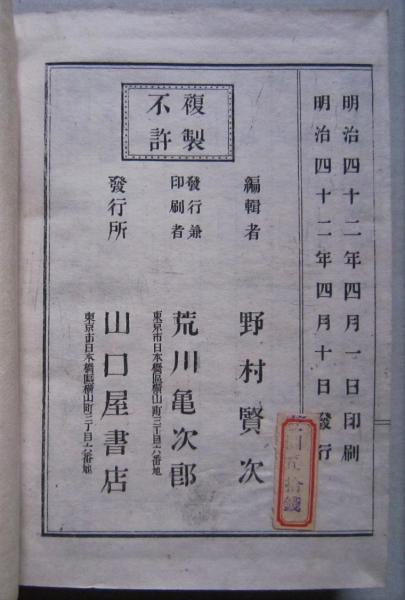 明治四十二年四月一日印刷
明治四十二年四月十日發行
複製
不許
編輯者
野村賢次
發行兼
印刷者
東京市日本橋區橫山町三丁目六番地
荒川亀次郎
發行所
東京市日本橋區橫山町三丁目六番地
山口屋書店
拾錢